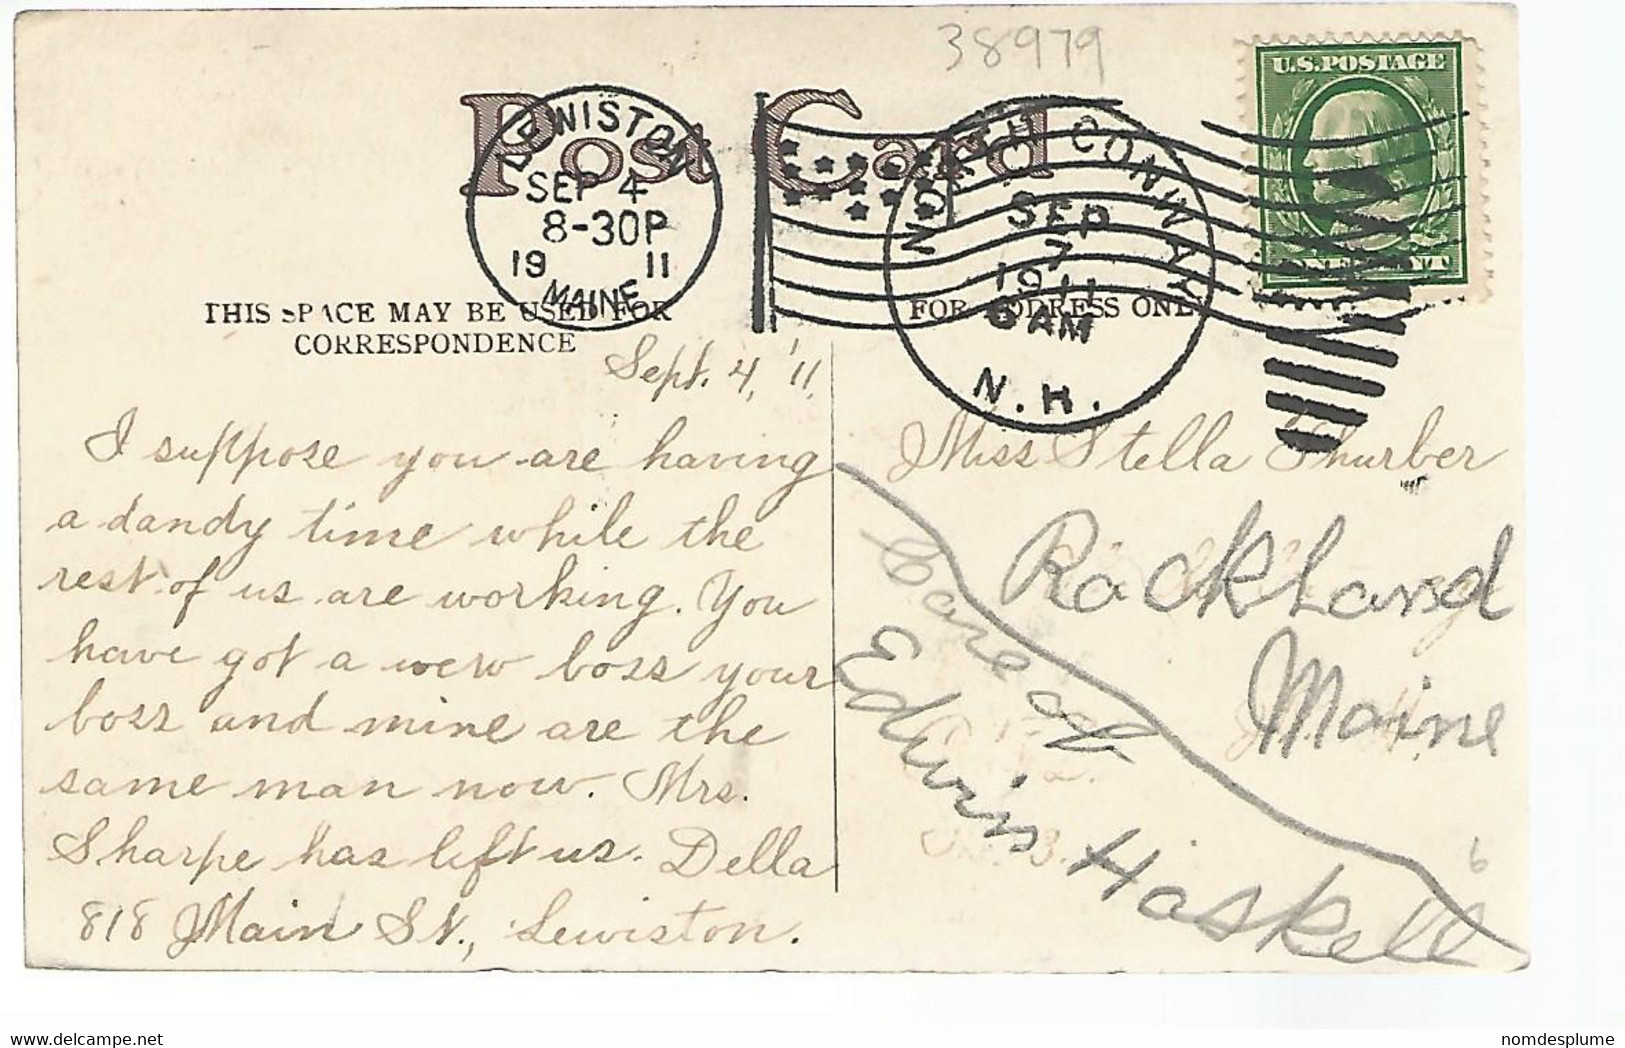 38979
U.S.POSTAGE
Post Card
LEWISTON
SEP 4
8-30P
19 11
MAINE
NORTH CONWAY
SEP
7
1911
6 AM
N.H.
THIS SPACE MAY BE USED FOR
CORRESPONDENCE
FOR ADDRESS ONLY
Sept. 4, '11.
I suppose you are having
a dandy time while the
rest of us are working. You
have got a new boss your
boss and mine are the
same man now. Mrs.
Sharpe has left us. Della
818 Main St., Lewiston.
Miss Stella Thurber
Rockland
Maine
Care of
Edwin Haskell
6
nomdesplume